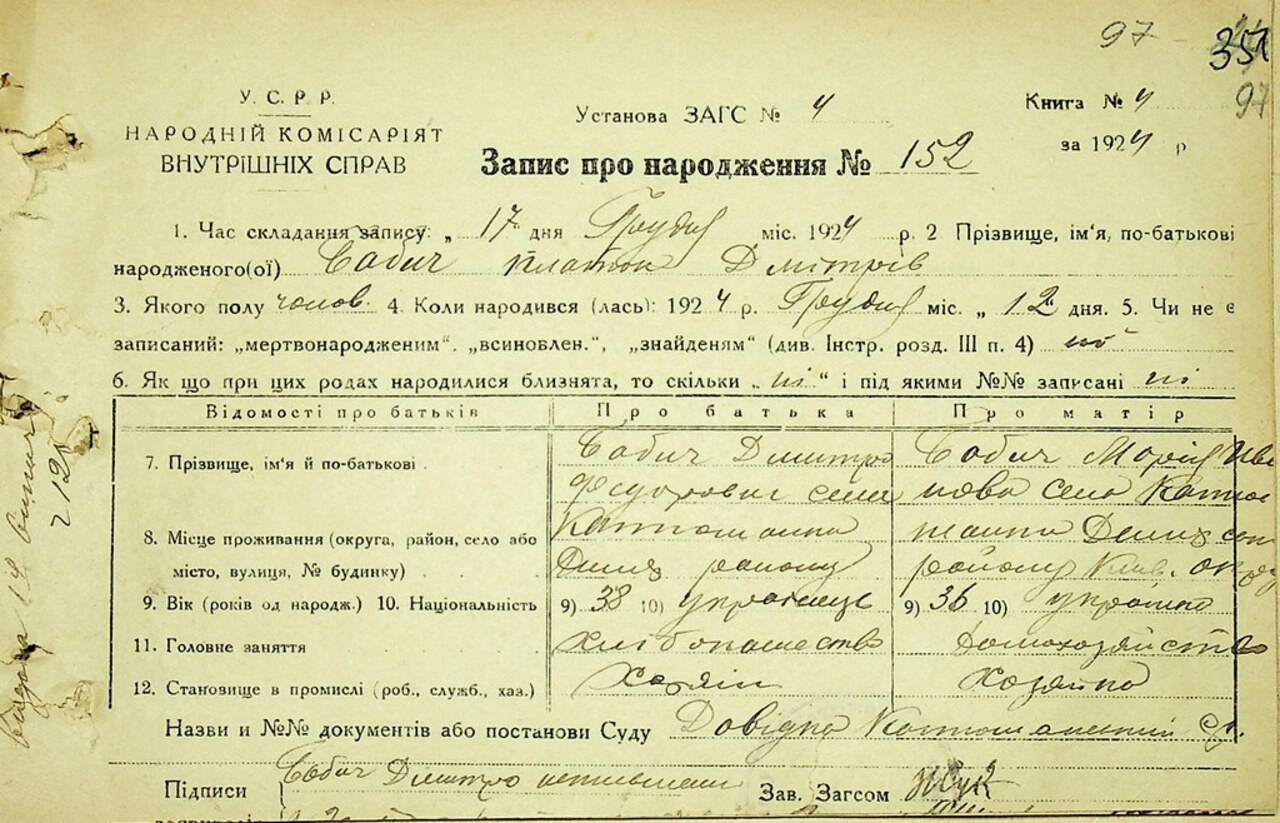 97
351
97
У. С. Р. Р.
НАРОДНІЙ КОМІСАРІЯТ
ВНУТРІШНІХ СПРАВ
Установа ЗАГС № 4
Книга № 4
за 1924 р
Запис про народження № 152
1. Час складання запису: „ 17 дня Грудня міс. 1924 р. 2 Прізвище, ім'я, по-батькові
народженого(ої) Бабич Платон Дмітрів
3. Якого полу чолов. 4. Коли народився (лась): 1924 р. Грудня міс. „ 12 дня. 5. Чи не є
записаний: „мертвонародженим", „всиновлен.", „знайденям" (див. Інстр. розд. III п. 4) ні
6. Як що при цих родах народилися близнята, то скільки „ ні " і під якими №№ записані ні
Відомості про батьків Про батька Про матір
7. Прізвище, ім'я й по-батькові Бабич Дмитро Бабич Марія Ива
Федорович села нова села
8. Місце проживання (округа, район, село або
місто, вулиця, № будинку) району району Київ.
9. Вік (років од народж.) 10. Національність 9) 38 10) українець 9) 36 10) українка
11. Головне заняття хлібопашество домохозяйство
12. Становище в промислі (роб., служб., хаз.) хазяін хозяйка
Назви и №№ документів або постанови Суду Довідка
Підписи Бабич Дмитро Зав. Загсом